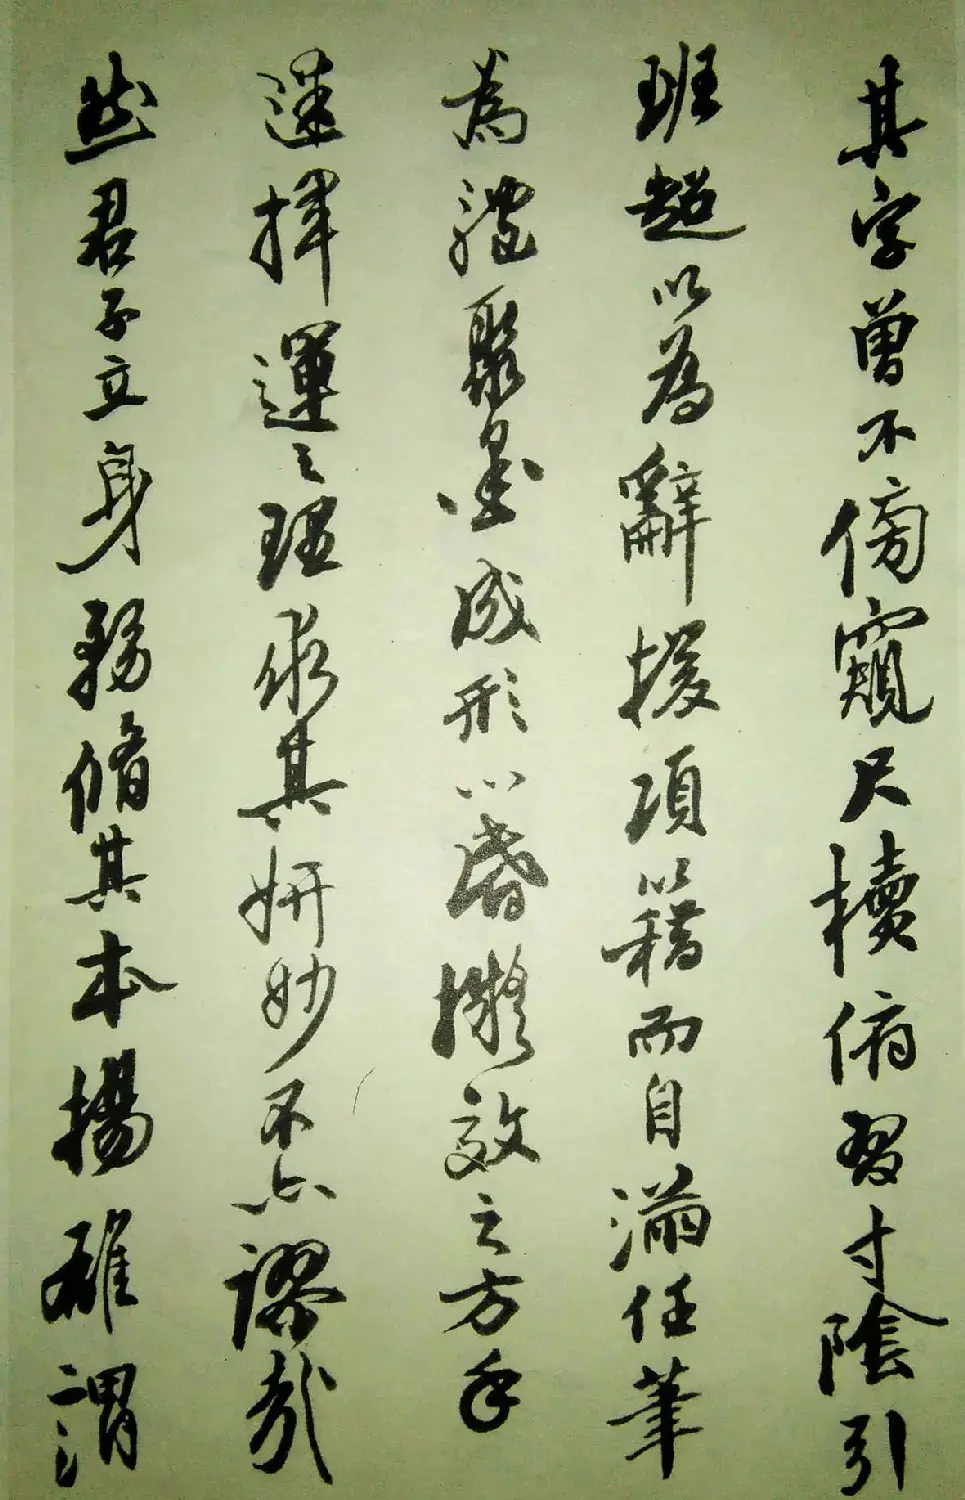 其字曾不傍窺尺牘俯習寸陰引
班超以為辭援項籍而自滿任筆
為體聚墨成形心昏擬效之方手
迷揮運之理求其妍妙不亦謬哉
然君子立身務脩其本揚雄謂